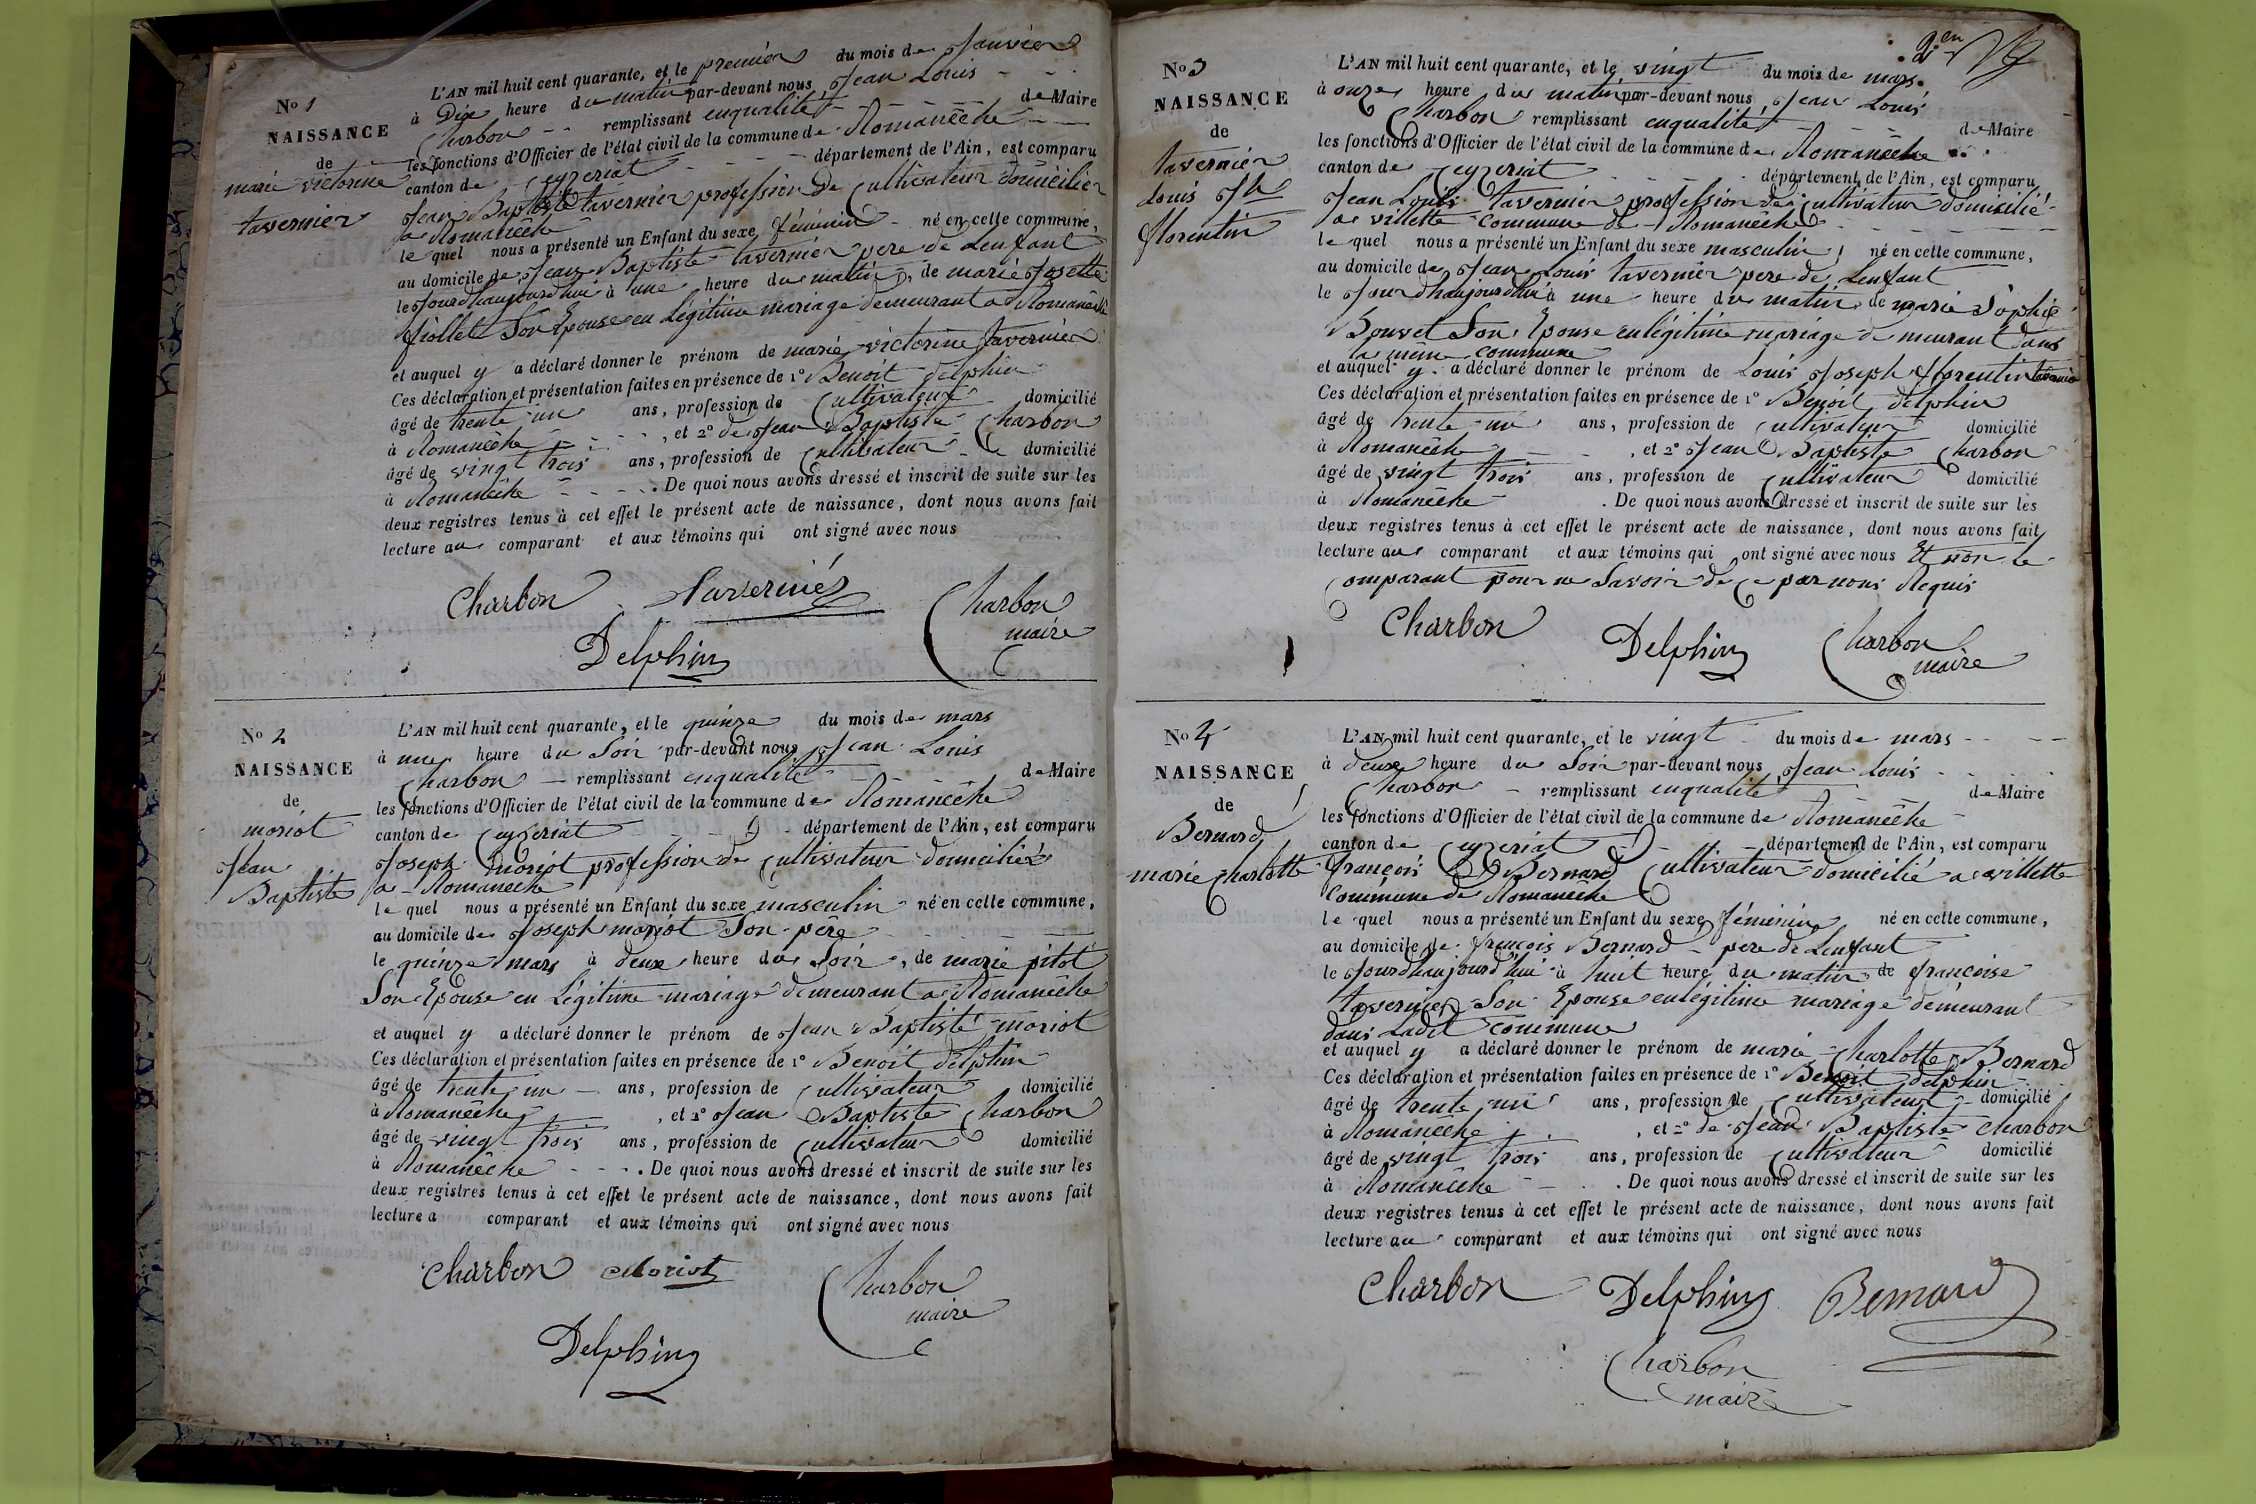 No 1
NAISSANCE
de
marie victorine
tavernier
L'AN mil huit cent quarante, et le premier du mois de Janvier
à Dix heure du matin par-devant nous Jean Louis
Charbon remplissant enqualité de Maire
les fonctions d'Officier de l'état civil de la commune de Romanêche
canton de Ceyzeriat département de l'Ain, est comparu
Jean Baptiste tavernier profession de Cultivateur domicilier
a Romanêche
le quel nous a présenté un Enfant du sexe féminin né en cette commune,
au domicile de Jean Baptiste tavernier pere de Lenfant
le Jourdhaujourdhui à une heure du matin, de marie Josette
fiollet Son Epouse en Légitime mariage demeurant a Romanêche
et auquel y a déclaré donner le prénom de marie victorine tavernier
Ces déclaration et présentation faites en présence de 1º Benoit delphin
âgé de trente un ans, profession de Cultivateur domicilié
à Romanêche, et 2º de Jean Baptiste Charbon
âgé de vingt trois ans, profession de Cultivateur domicilié
à Romanêche . De quoi nous avons dressé et inscrit de suite sur les
deux registres tenus à cet effet le présent acte de naissance, dont nous avons fait
lecture au comparant et aux témoins qui ont signé avec nous
Charbon Tavernier Charbon
maire
Delphin
No 2
NAISSANCE
de
moriot
Jean
Baptiste
L'AN mil huit cent quarante, et le quinze du mois de mars
à une heure du Soir par-devant nous Jean Louis
Charbon remplissant enqualité de Maire
les fonctions d'Officier de l'état civil de la commune de Romanêche
canton de Ceyzeriat département de l'Ain, est comparu
Joseph moriot profession de Cultivateur domicilié
a Romanêche
le quel nous a présenté un Enfant du sexe masculin né en cette commune,
au domicile de Joseph moriot Son père
le quinze mars à deux heure du Soir, de marie pitot
Son Epouse en Légitime mariage demeurant a Romanêche
et auquel y a déclaré donner le prénom de Jean Baptiste moriot
Ces déclaration et présentation faites en présence de 1º Benoit delphin
âgé de trente un ans, profession de Cultivateur domicilié
à Romanêche, et 2º Jean Baptiste Charbon
âgé de vingt trois ans, profession de Cultivateur domicilié
à Romanêche . De quoi nous avons dressé et inscrit de suite sur les
deux registres tenus à cet effet le présent acte de naissance, dont nous avons fait
lecture a comparant et aux témoins qui ont signé avec nous
Charbon Moriot Charbon
maire
Delphin
2en
No 3
NAISSANCE
de
tavernier
Louis Jh
florentin
L'AN mil huit cent quarante, et le vingt du mois de mars
à onze heure du matin par-devant nous Jean Louis
Charbon remplissant enqualité de Maire
les fonctions d'Officier de l'état civil de la commune de Romanêche
canton de Ceyzeriat département de l'Ain, est comparu
Jean Louis tavernier profession de Cultivateur domicilié
a villette commune de Romanêche
le quel nous a présenté un Enfant du sexe masculin né en cette commune,
au domicile de Jean Louis tavernier pere de Lenfant
le Jourdhaujourdhui à une heure du matin de marie Sophie
Bouvet Son Epouse en légitime mariage demeurant dans
la même commune
et auquel y a déclaré donner le prénom de Louis Joseph florentin tavernier
Ces déclaration et présentation faites en présence de 1º Benoit delphin
âgé de trente un ans, profession de Cultivateur domicilié
à Romanêche, et 2º Jean Baptiste Charbon
âgé de vingt trois ans, profession de Cultivateur domicilié
à Romanêche . De quoi nous avons dressé et inscrit de suite sur les
deux registres tenus à cet effet le présent acte de naissance, dont nous avons fait
lecture au comparant et aux témoins qui ont signé avec nous Et non le
Comparant pour ne Savoir de Ce par nous Requis
Charbon Delphin Charbon
maire
No 4
NAISSANCE
de
Bernard
marie Charlotte
L'AN mil huit cent quarante, et le vingt du mois de mars
à deux heure du Soir par-devant nous Jean Louis
Charbon remplissant enqualité de Maire
les fonctions d'Officier de l'état civil de la commune de Romanêche
canton de Ceyzeriat département de l'Ain, est comparu
françois Bernard Cultivateur domicilié a villette
Commune de Romanêche
le quel nous a présenté un Enfant du sexe féminin né en cette commune,
au domicile de françois Bernard pere de Lenfant
le Jourdhaujourd'hui à huit heure du matin de françoise
tavernier Son Epouse en légitime mariage demeurant
dans Ladit commune
et auquel y a déclaré donner le prénom de marie Charlotte Bernard
Ces déclaration et présentation faites en présence de 1º Benoit delphin
âgé de trente un ans, profession de Cultivateur domicilié
à Romanêche, et 2º de Jean Baptiste Charbon
âgé de vingt trois ans, profession de Cultivateur domicilié
à Romanêche . De quoi nous avons dressé et inscrit de suite sur les
deux registres tenus à cet effet le présent acte de naissance, dont nous avons fait
lecture au comparant et aux témoins qui ont signé avec nous
Charbon Delphin Bernard
Charbon
maire